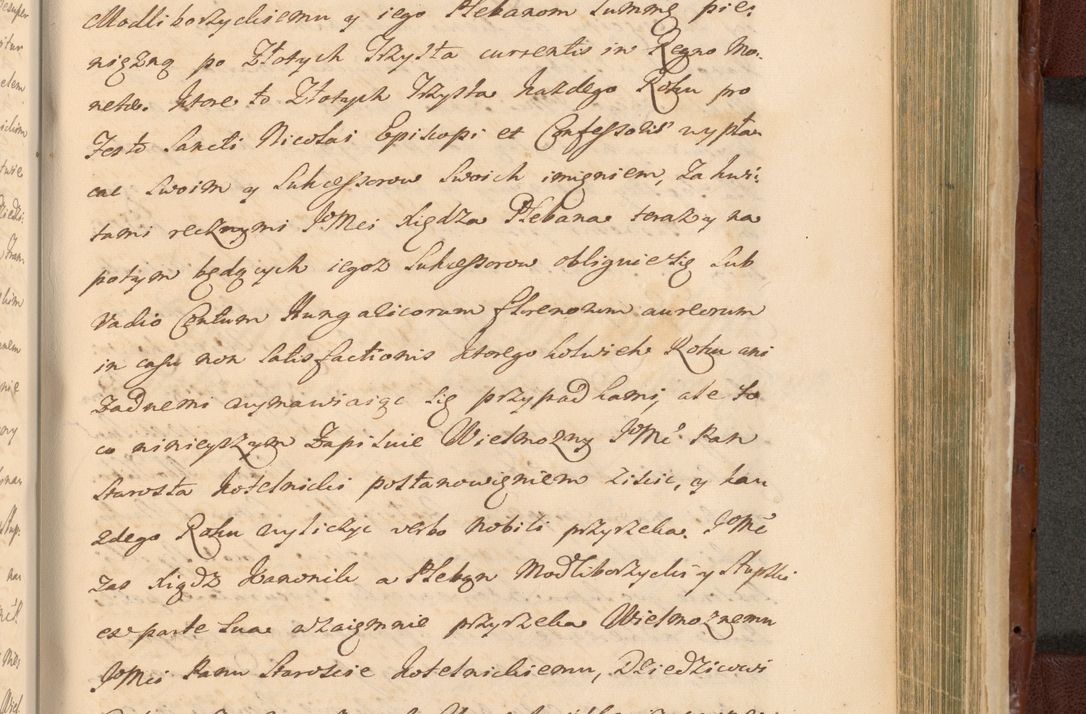 Modliborzyckiemu y iego Plebanom Summę pie:
niężną po Złotych Trzysta currentis in Regno Mo:
netæ. Ktore to Złotych Trzysta każdego Roku pro
Festo Sancti Nicolai Episcopi et Confessoris wypła
cac Swoim y Sukcessorow Swoich imieniem, Za kwi:
tami ręcznymi JMci Xiędza Plebana teraz y na
potym będących iegoz Sukcessorow obliguie się Sub
Vadio Centum Hungaricorum florenorum aureorum
in casu non Satisfactionis ktorego kolwiek Roku ani
żadnemi wymawiaiąc się przypadkami, ale to
co ninieyszym Zapisuie Wielmozny JMć Pan
Starosta Kotelnicki postanowieniem ziścić, y kaz
zdego Roku wyliczyc verbo nobili przyrzeka. JMć
zas Xiądz Kanonik a Pleban Modliborzycki y Słupski
ex parte Sua wzaiemnie przyrzeka Wielmoznemu
JMci Panu Staroscie Kotelnickiemu, Dziedzicowi